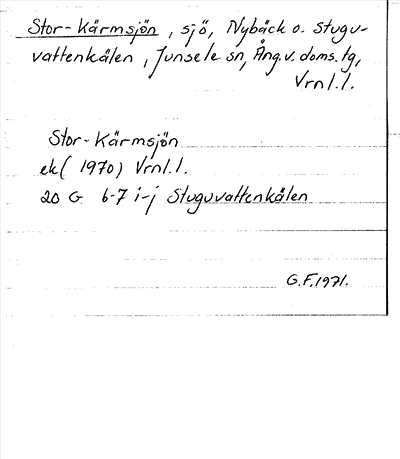 Stor-Kärmsjön, sjö, Nybäck o. Stugu-
vattenkälen, Junsele sn, Ång.v. doms.tg,
Vrnl.l.
Stor-Kärmsjön
ek (1970) Vrnl.l.
20 G 6-7 i-j Stuguvattenkålen
G.F. 1971.